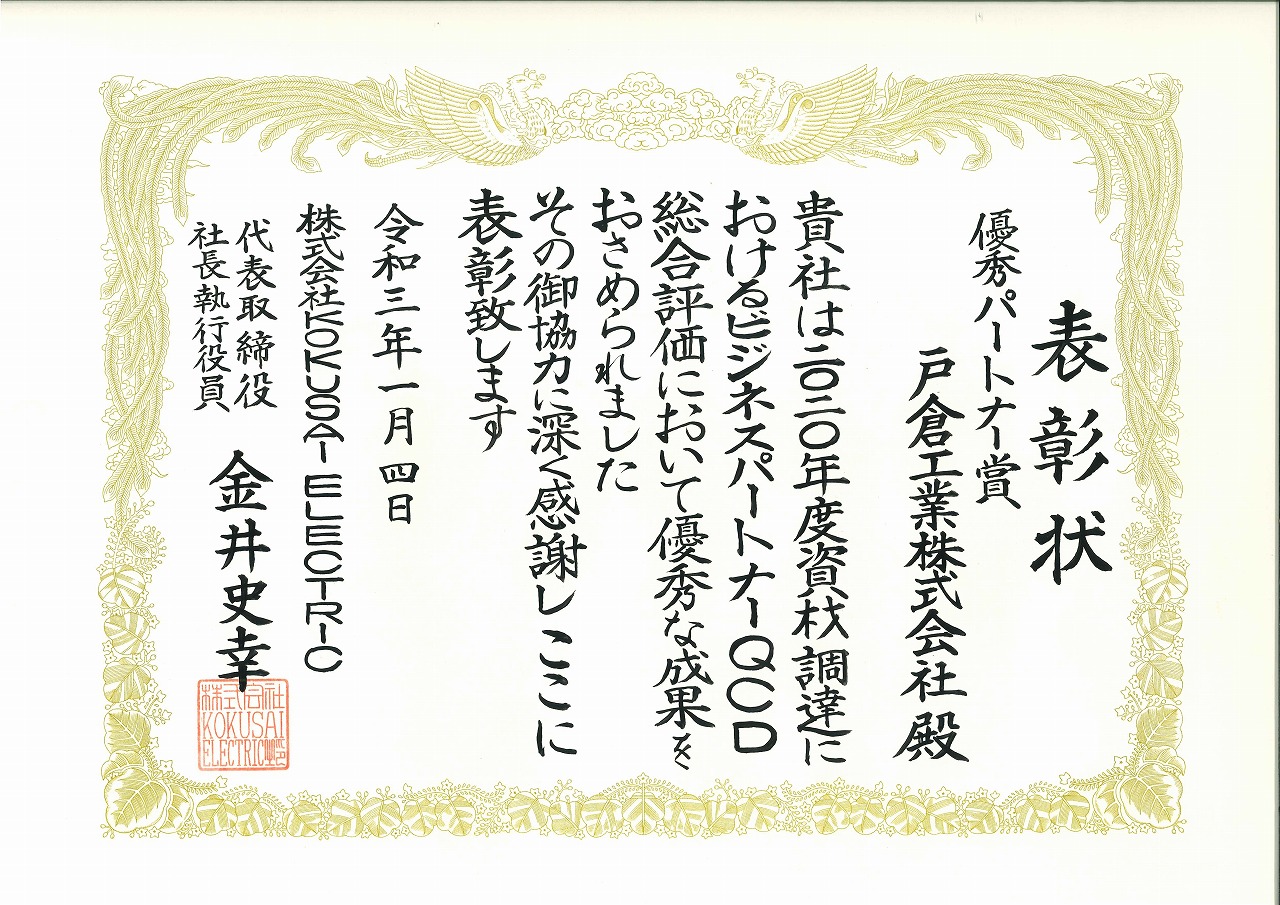 表彰状
優秀パートナー賞
戸倉工業株式会社殿
貴社は二〇二〇年度資材調達に
おけるビジネスパートナーQCD
総合評価において優秀な成果を
おさめられました
その御協力に深く感謝しここに
表彰致します
令和三年一月四日
株式会社KOKUSAI ELECTRIC
代表取締役
社長執行役員
金井史幸
株式会社
KOKUSAI
ELECTRIC